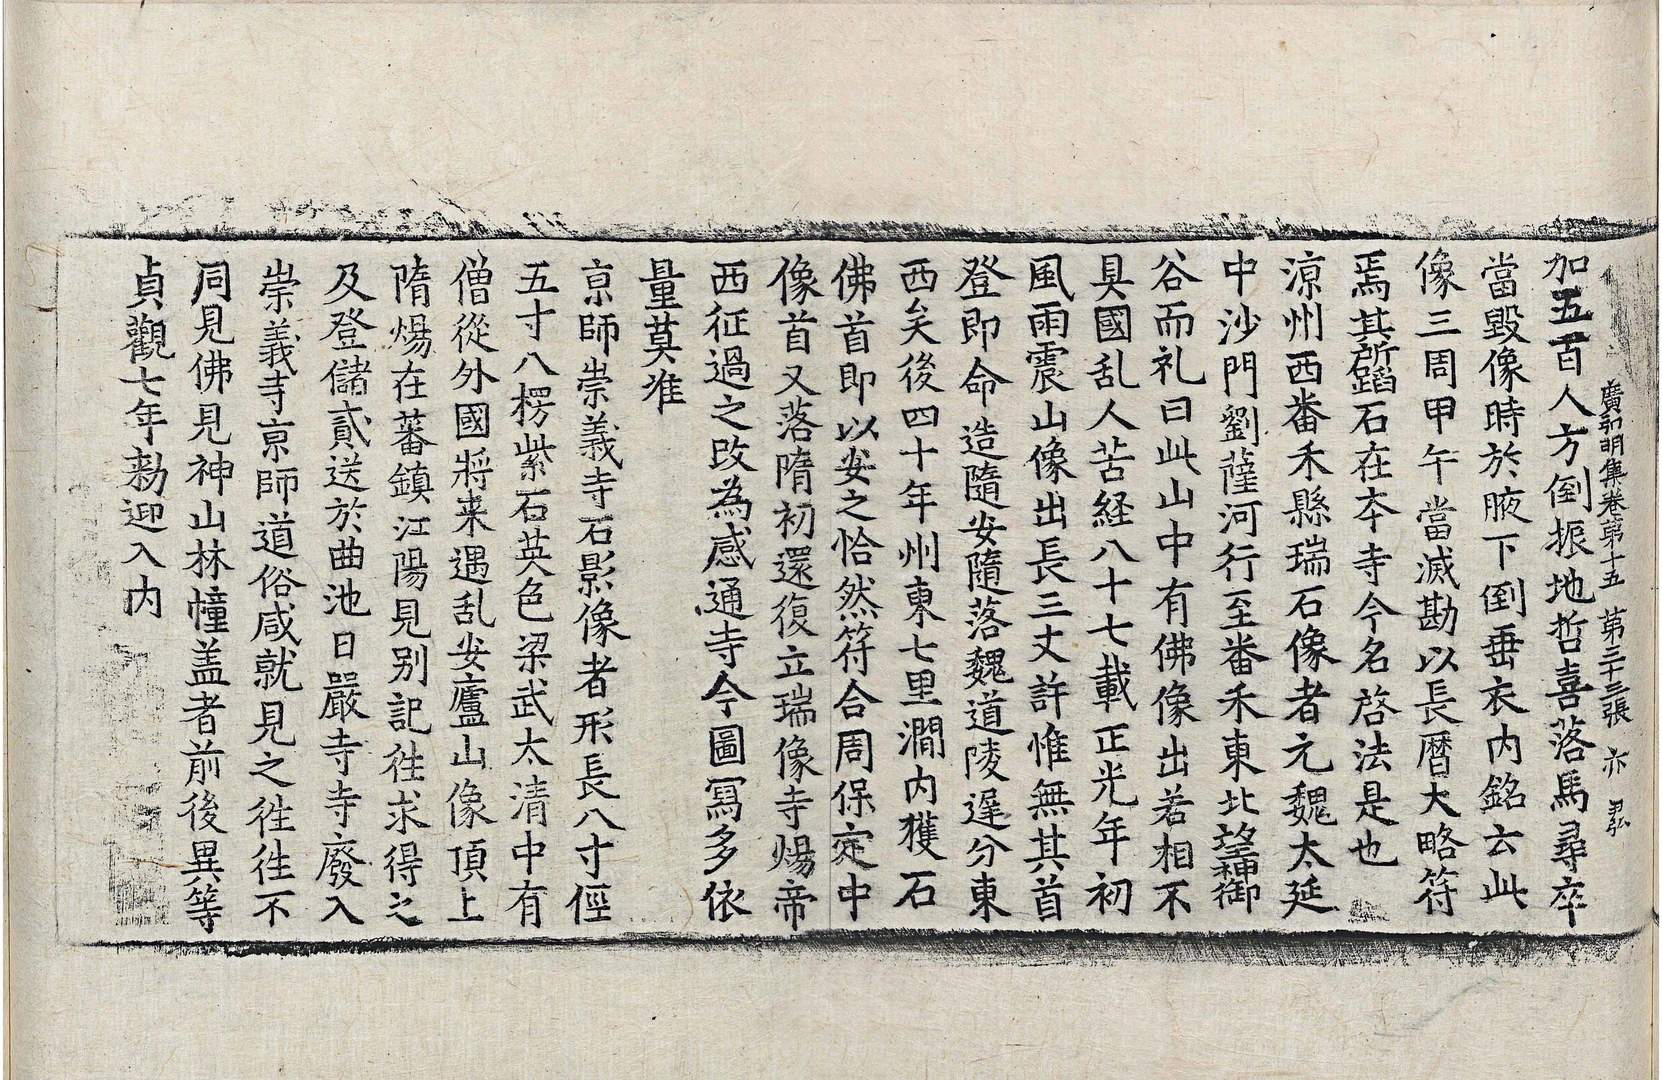 廣弘明集卷第十五 第三十三張 亦
加五百人方倒振地哲喜落馬尋卒
當毀像時於腋下倒垂衣內銘云此
像三周甲午當滅勘以長曆大略符
焉其所蹈石在夲寺今名啓法是也
涼州西番禾縣瑞石像者元魏太延
中沙門劉薩河行至番禾東北望御
谷而礼曰此山中有佛像出若相不
具國乱人苦経八十七載正光年初
風雨震山像出長三丈許惟無其首
登即命造隨安隨落魏道陵遲分東
西矣後四十年州東七里澗內獲石
佛首即以安之恰然符合周保定中
像首又落隋初還復立瑞像寺煬帝
西征過之改為感通寺今圖寫多依
量莫准
京師崇義寺石影像者形長八寸徑
五寸八楞紫石英色梁武太清中有
僧從外國將来遇乱安廬山像頂上
隋煬在蕃鎮江陽見别記徃求得之
及登儲貳送於曲池日嚴寺寺廢入
崇義寺京師道俗咸就見之徃徃不
同見佛見神山林幢盖者前後異等
貞觀七年勑迎入内